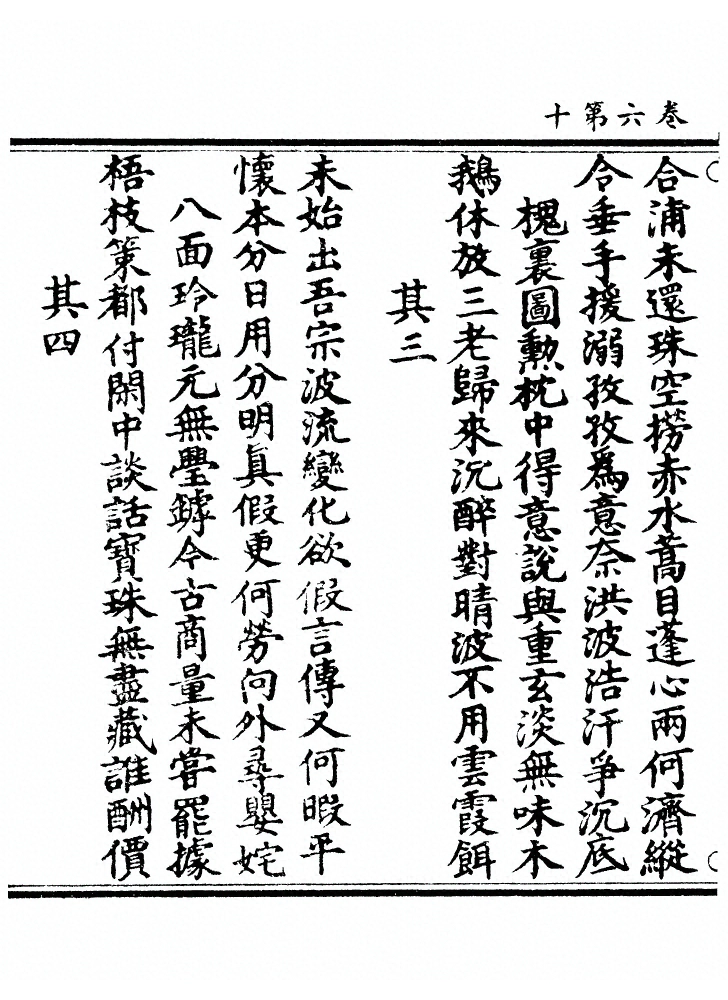 卷六第十
合浦未還珠空撈赤水蒿目蓬心兩何濟縱
令垂手援溺孜孜為意奈洪波浩汗爭沉底
槐裏圖勲枕中得意說與重玄淡無味木
鵝休放三老歸來沉醉對晴波不用雲霞餌
其三
未始出吾宗波流變化欲假言傳又何暇平
懷本分日用分明真假更何勞向外尋嬰姹
八面玲瓏元無璺罅今古商量未嘗罷據
梧枝策都付閑中談話寶珠無盡藏誰酬價
其四